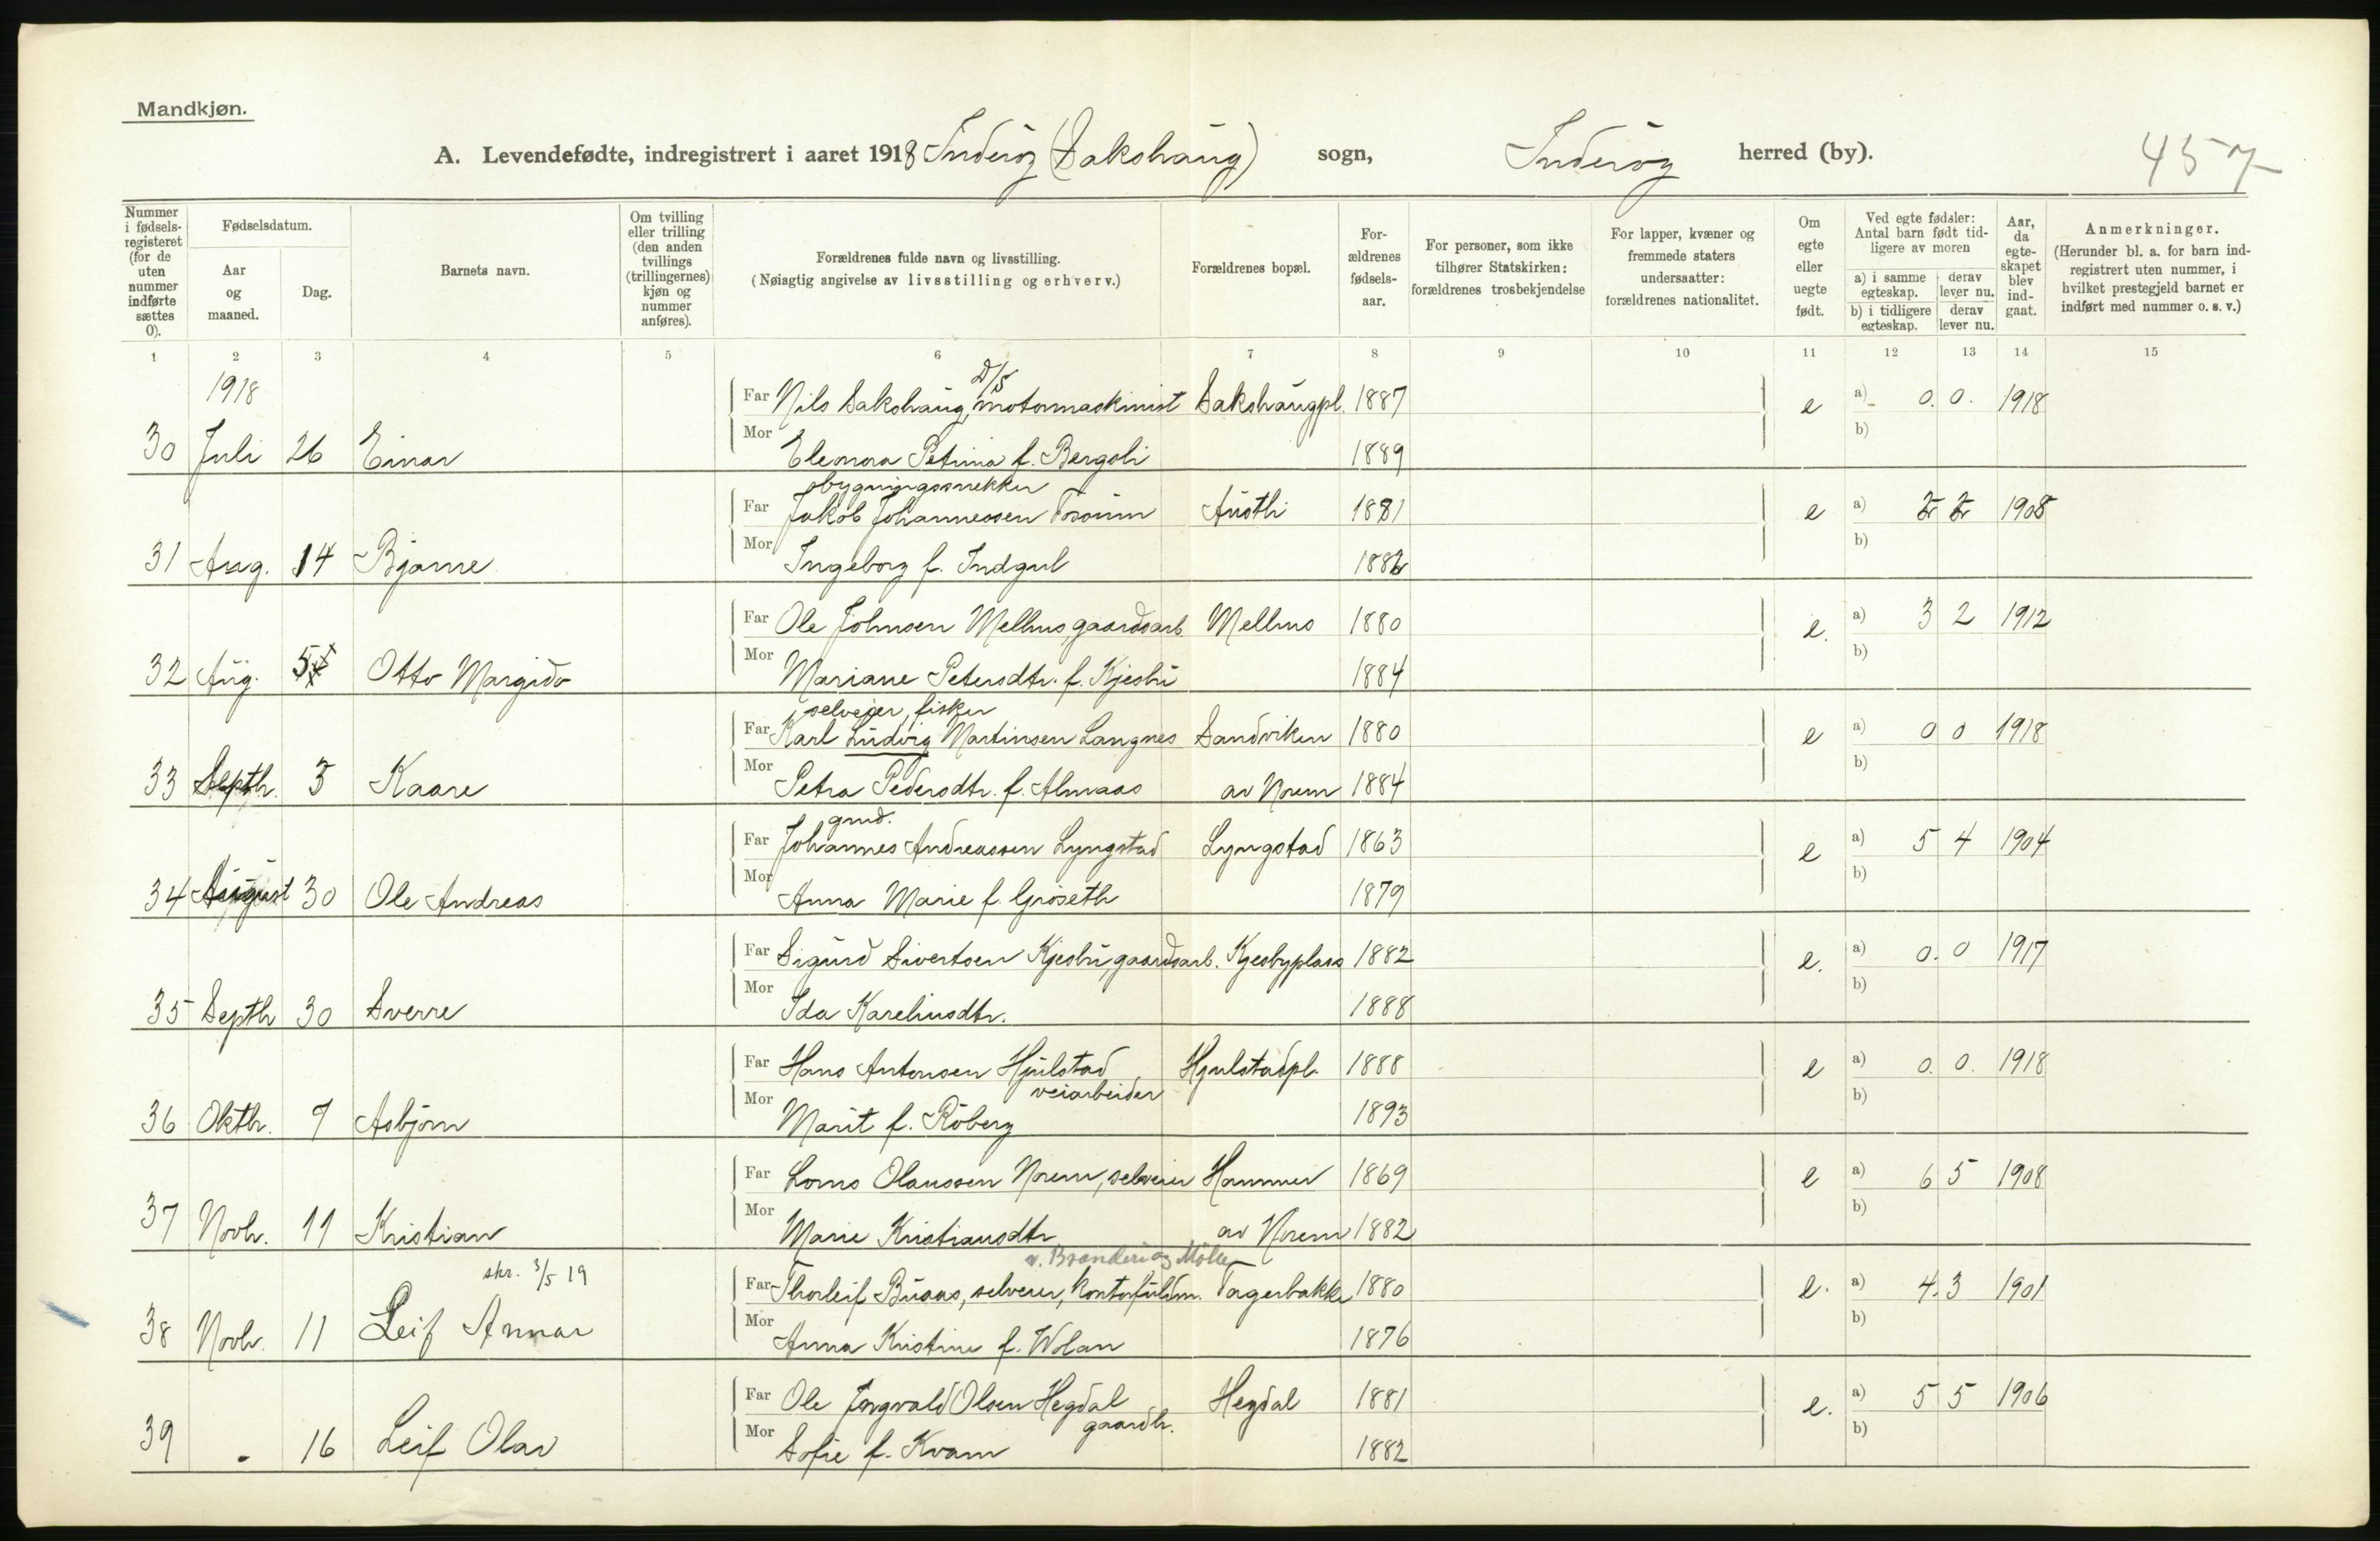 Mandkjøn.
A. Levendefødte, indregistrert i aaret 1918 Inderøy (Sakshaug) sogn, Inderøy herred (by). 457
Nummer i fødselsregisteret (for de uten nummer indførte sættes 0).
Fødselsdatum.
Aar og maaned.
Dag.
Barnets navn.
Om tvilling eller trilling (den anden tvillings (trillingernes) kjøn og nummer anføres).
Forældrenes fulde navn og livsstilling.
(Nøiagtig angivelse av livsstilling og erhverv.)
Forældrenes bopæl.
Forældrenes fødselsaar.
For personer, som ikke tilhører Statskirken: forældrenes trosbekjendelse
For lapper, kvæner og fremmede staters undersaatter: forældrenes nationalitet.
Om egte eller uegte født.
Ved egte fødsler: Antal barn født tidligere av moren
a) i samme egteskap. derav lever nu.
b) i tidligere egteskap. derav lever nu.
Aar, da egteskapet blev indgaat.
Anmerkninger.
(Herunder bl. a. for barn indregistrert uten nummer, i hvilket prestegjeld barnet er indført med nummer o. s. v.)
1 2 3 4 5 6 7 8 9 10 11 12 13 14 15
1918
D/S
Far Nils Sakshaug, motormaskinist Sakshaugpl. 1887 e a) 0. 0. 1918
30 Juli 26 Einar Mor Eleonora Petrina f. Bergsli 1889 b)
bygningssnekker
Far Jakob Johannessen Austli 1881 e a) 1908
31 Aug. 14 Bjarne Mor Ingeborg f. Indgul 1882 b)
Far Ole Johnsen Melhus gaardsarb. Melhus 1880 e. a) 3 2 1912
32 Aug. 5 Otto Margido Mor Mariane Petersdtr. f. Kjesbu 1884 b)
selveier, fisker
Far Karl Ludvig Martinsen Langnes Sandviken 1880 e a) 0 0 1918
33 Septbr. 3 Kaare Mor Petra Pedersdtr. f. Almaas av Norem 1884 b)
grud.
Far Johannes Andreassen Lyngstad Lyngstad 1863 e a) 5 4 1904
34 August 30 Ole Andreas Mor Anna Marie f. Grøseth 1879 b)
Far Sigurd Sivertsen Kjesbu gaardsarb. Kjesbyplass 1882 e. a) 0. 0 1917
35 Septbr 30 Sverre Mor Ida Kareliusdtr. 1888 b)
Far Hans Antonsen Hjulstad Hjulstadpl. 1888 e a) 0. 0. 1918
veiarbeider
36 Oktbr. 9 Asbjørn Mor Marit f. Røberg 1893 b)
Far Lorns Olaussen Norem, selveier Hammer 1869 e a) 6 5 1908
37 Novbr. 11 Kristian Mor Marie Kristiansdtr av Norem 1882 b)
v. Brænderi og Mølle
skr. 3/5 19
Far Thorleif Buaas, selveier, kontorfuldm. Tagerbakke 1880 e. a) 4. 3 1901
38 Novbr. 11 Leif Annar Mor Anna Kristine f. Wolan 1876 b)
Far Ole Ingvald Olsen Hegdal Hegdal 1881 e. a) 5 5 1906
gaardbr.
39 " 16 Leif Olav Mor Sofie f. Kvam 1882 b)